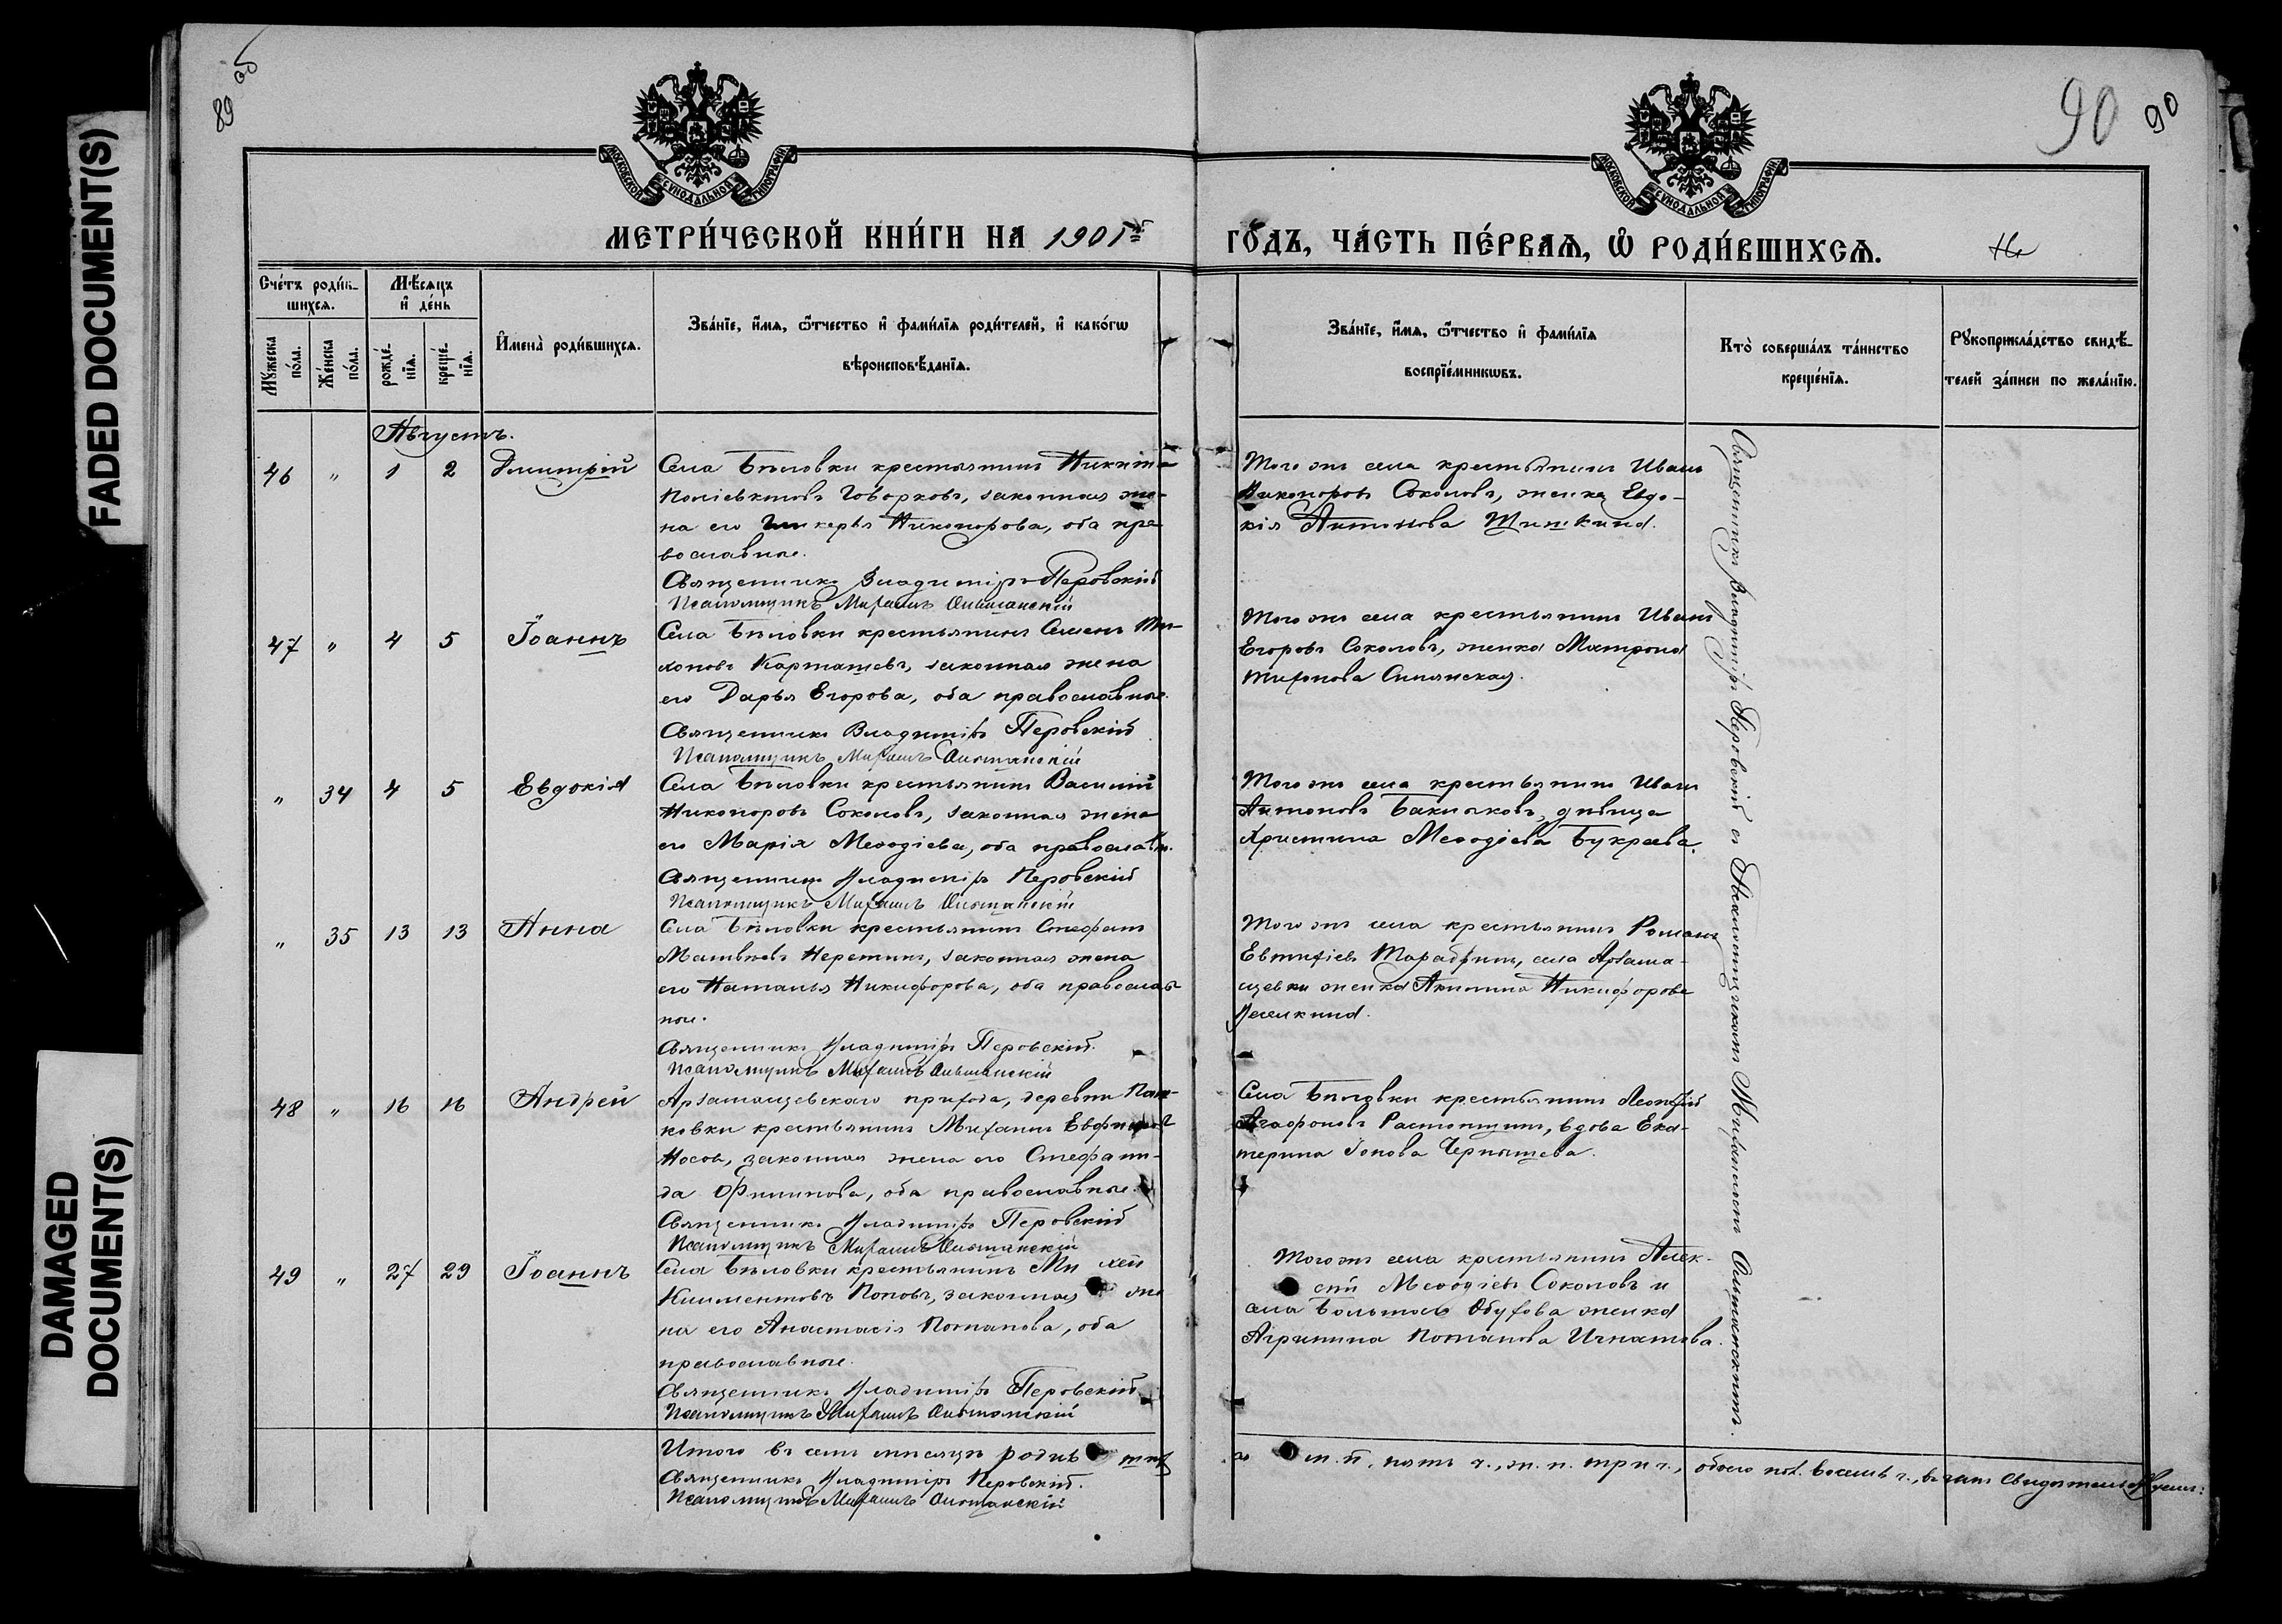 FADED DOCUMENT(S)
DAMAGED
DOCUMENT(S)
89 об
90
90
МОСКОВСКОЙ СУНОДАЛЬНОЙ ТИПОГРАФІИ
МОСКОВСКОЙ СУНОДАЛЬНОЙ ТИПОГРАФІИ
МЕТРИ́ЧЕСКОЙ КНИ́ГИ НА 1901й
ГО́ДЪ, ЧА́СТЬ ПЕ́РВАѦ, Ѡ҆ РОДИ́ВШИХСѦ.
Сче́тъ роди́в-
шихсѧ.
Мѣ́сѧцъ
и҆ де́нь
Мꙋ́жеска
по́ла.
Же́нска
по́ла.
рожде́-
нїѧ.
креще́-
нїѧ.
И҆мена̀ роди́вшихсѧ.
Зва́нїе, и҆́мѧ, ѻ҆́тчество и҆ фами́лїѧ роди́телей, и҆ како́гѡ
вѣроисповѣ́данїѧ.
Зва́нїе, и҆́мѧ, ѻ҆́тчество и҆ фами́лїѧ
воспрїе́мникѡвъ.
Кто̀ соверша́лъ та́инство
креще́нїѧ.
Рꙋкоприкла́дство свидѣ́-
телей за́писи по жела́нїю.
Августъ.
46 " 1 2 Димитрій
Села Бѣловки крестьянинъ Никита
Говорковъ, законная же-
на его Никонорова, оба пра-
вославные.
Священникъ Владиміръ Перовскій
Псаломщикъ Михаилъ Ольшанскій
Того же села крестьянинъ Иванъ
Никоноровъ Соколовъ, женка Евдо-
кія Антонова Шишкина.
47 " 4 5 Іоаннъ
Села Бѣловки крестьянинъ Семенъ Ти-
хоновъ Карташевъ, законная жена
его Дарья Егорова, оба православные.
Священникъ Владиміръ Перовскій
Псаломщикъ Михаилъ Ольшанскій
Того же села крестьянинъ Иванъ
Егоровъ Соколовъ, женка Матрона
Тихонова
" 34 4 5 Евдокія
Села Бѣловки крестьянинъ Василий
Никоноровъ Соколовъ, законная жена
его Марія Меѳодіева, оба православн.
Священникъ Владиміръ Перовскій
Псаломщикъ Михаилъ Ольшанскій
Того же села крестьянинъ Иванъ
Антоновъ дѣвица
Христина Меѳодіева Букреева.
" 35 13 13 Анна
Села Бѣловки крестьянинъ Стефанъ
Матвѣевъ законная жена
его Наталья Никифорова, оба православ
ные.
Священникъ Владиміръ Перовскій.
Псаломщикъ Михаилъ Ольшанскій
Того же села крестьянинъ Романъ
Евтихіевъ Тарабринъ, села Арзама-
сцевки женка Акилина Никифорова
48 " 16 16 Андрей
Арзамасцевскаго прихода, деревни Пан-
ковки крестьянинъ Михаилъ
Носовъ, законная жена его Стефани-
да Филипова, оба православные.
Священникъ Владиміръ Перовскій
Псаломщикъ Михаилъ Ольшанскій
Села Бѣловки крестьянинъ Леонтій
Агафоновъ Растопшинъ, вдова Ека-
терина Іонова Чернышева.
49 " 27 29 Іоаннъ
Села Бѣловки крестьянинъ Ми хей
Климентовъ Поповъ, законная же
на его Анастасія Потапова, оба
православные.
Священникъ Владиміръ Перовскій
Псаломщикъ Михаилъ Ольшанскій
Того же села крестьянинъ Алек-
сѣй Меѳодіевъ Соколовъ и
села Большаго Обухова женка
Агрипина Потапова Игнатова.
Священникъ Владиміръ Перовскій съ Псаломщикомъ Михаиломъ Ольшанскимъ.
Итого въ семъ мѣсяцѣ родив шихся м. п. пять ч., ж. п. три ч., обоего пол. восемь ч., въ чемъ свидѣтельствуемъ:
Священникъ Владиміръ Перовскій.
Псаломщикъ Михаилъ Ольшанскій